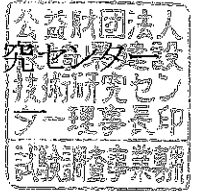 公益財団法人
発センター
建設
技術研究セン
ター理事長印
試験調査事業